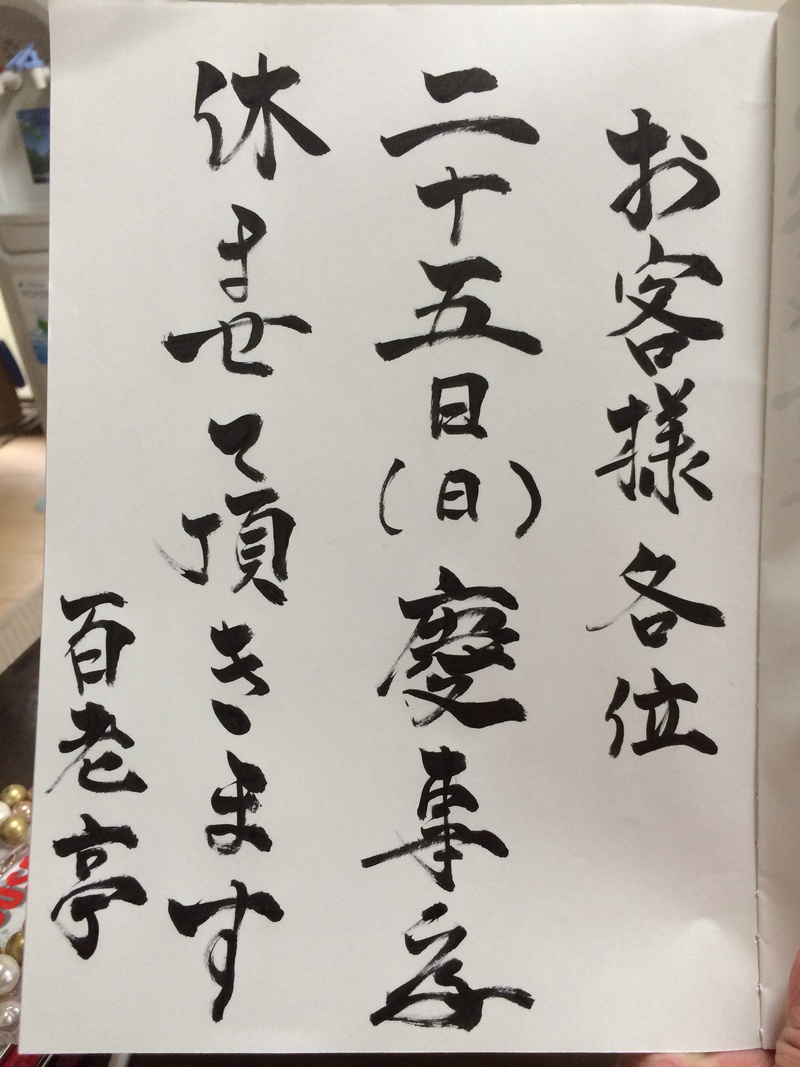 お客様 各位
二十五日(日)慶事為
休ませて頂きます
百老亭